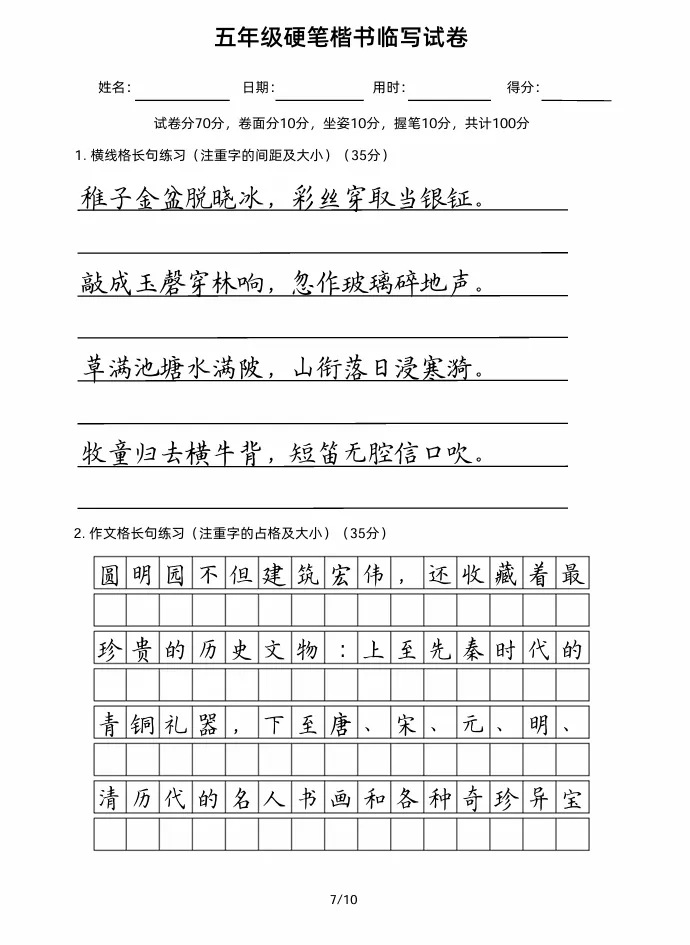 五年级硬笔楷书临写试卷
姓名： 日期： 用时： 得分：
试卷分70分，卷面分10分，坐姿10分，握笔10分，共计100分
1. 横线格长句练习（注重字的间距及大小）（35分）
稚子金盆脱晓冰，彩丝穿取当银钲。
敲成玉磬穿林响，忽作玻璃碎地声。
草满池塘水满陂，山衔落日浸寒漪。
牧童归去横牛背，短笛无腔信口吹。
2. 作文格长句练习（注重字的占格及大小）（35分）
圆明园不但建筑宏伟，还收藏着最
珍贵的历史文物：上至先秦时代的
青铜礼器，下至唐、宋、元、明、
清历代的名人书画和各种奇珍异宝
7/10